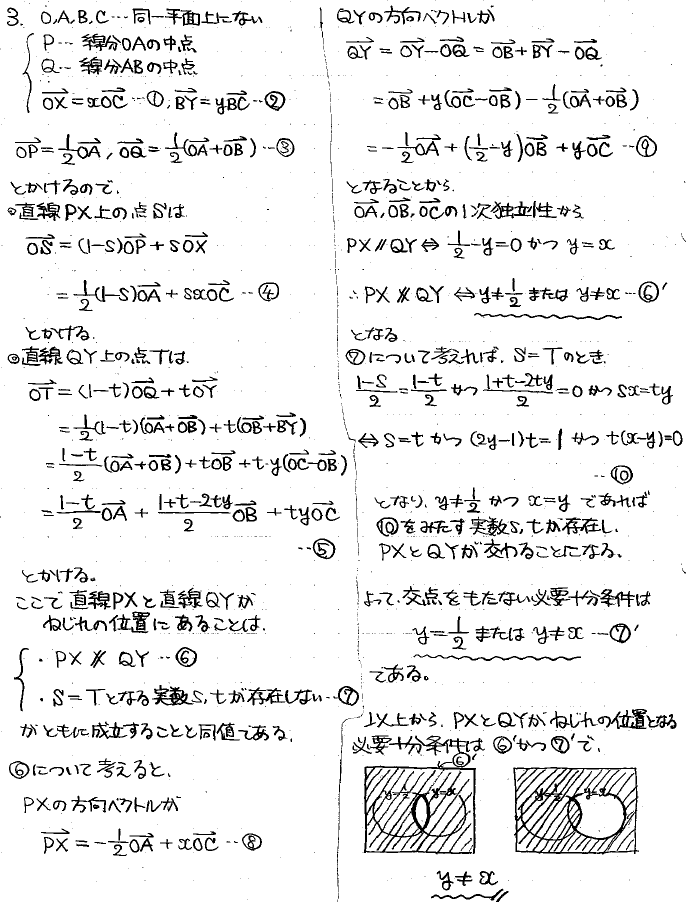 3. O, A, B, C … 同一平面上にない
P … 線分OAの中点
Q … 線分ABの中点
OX→ = xOC→ … ①, BY→ = yBC→ … ②
OP→ = 1/2 OA→, OQ→ = 1/2(OA→+OB→) … ③
とかけるので、
◦直線PX上の点Sは
OS→ = (1-s)OP→ + sOX→
= 1/2(1-s)OA→ + sxOC→ … ④
とかける.
◎直線QY上の点Tは.
OT→ = (1-t)OQ→ + tOY→
= 1/2(1-t)(OA→+OB→) + t(OB→+BY→)
= (1-t)/2 (OA→+OB→) + tOB→ + t·y(OC→-OB→)
= (1-t)/2 OA→ + (1+t-2ty)/2 OB→ + tyOC→
… ⑤
とかける。
ここで直線PXと直線QYが
ねじれの位置にあることは.
・PX ∦ QY … ⑥
・S=Tとなる実数s,tが存在しない … ⑦
がともに成立することと同値である.
⑥について考えると、
PXの方向ベクトルが
PX→ = -1/2 OA→ + xOC→ … ⑧
QYの方向ベクトルが
QY→ = OY→-OQ→ = OB→+BY→-OQ→
= OB→ + y(OC→-OB→) - 1/2(OA→+OB→)
= -1/2 OA→ + (1/2-y)OB→ + yOC→ … ⑨
となることから.
OA→, OB→, OC→の1次独立性から
PX∥QY ⇔ 1/2-y=0 かつ y=x
∴ PX ∦ QY ⇔ y≠1/2 または y≠x … ⑥'
となる
⑦について考えれば. S=Tのとき.
(1-s)/2 = (1-t)/2 かつ (1+t-2ty)/2 = 0 かつ sx=ty
⇔ s=t かつ (2y-1)t=1 かつ t(x-y)=0
… ⑩
となり、y≠1/2 かつ x=y であれば
⑩をみたす実数s,tが存在し、
PXとQYが交わることになる、
よって、交点をもたない必要十分条件は
y=1/2 または y≠x … ⑦'
である。
以上から、PXとQYがねじれの位置となる
必要十分条件は ⑥'かつ⑦'で、
⑥'
y=1/2 y=x
y=1/2 y=x
y≠x